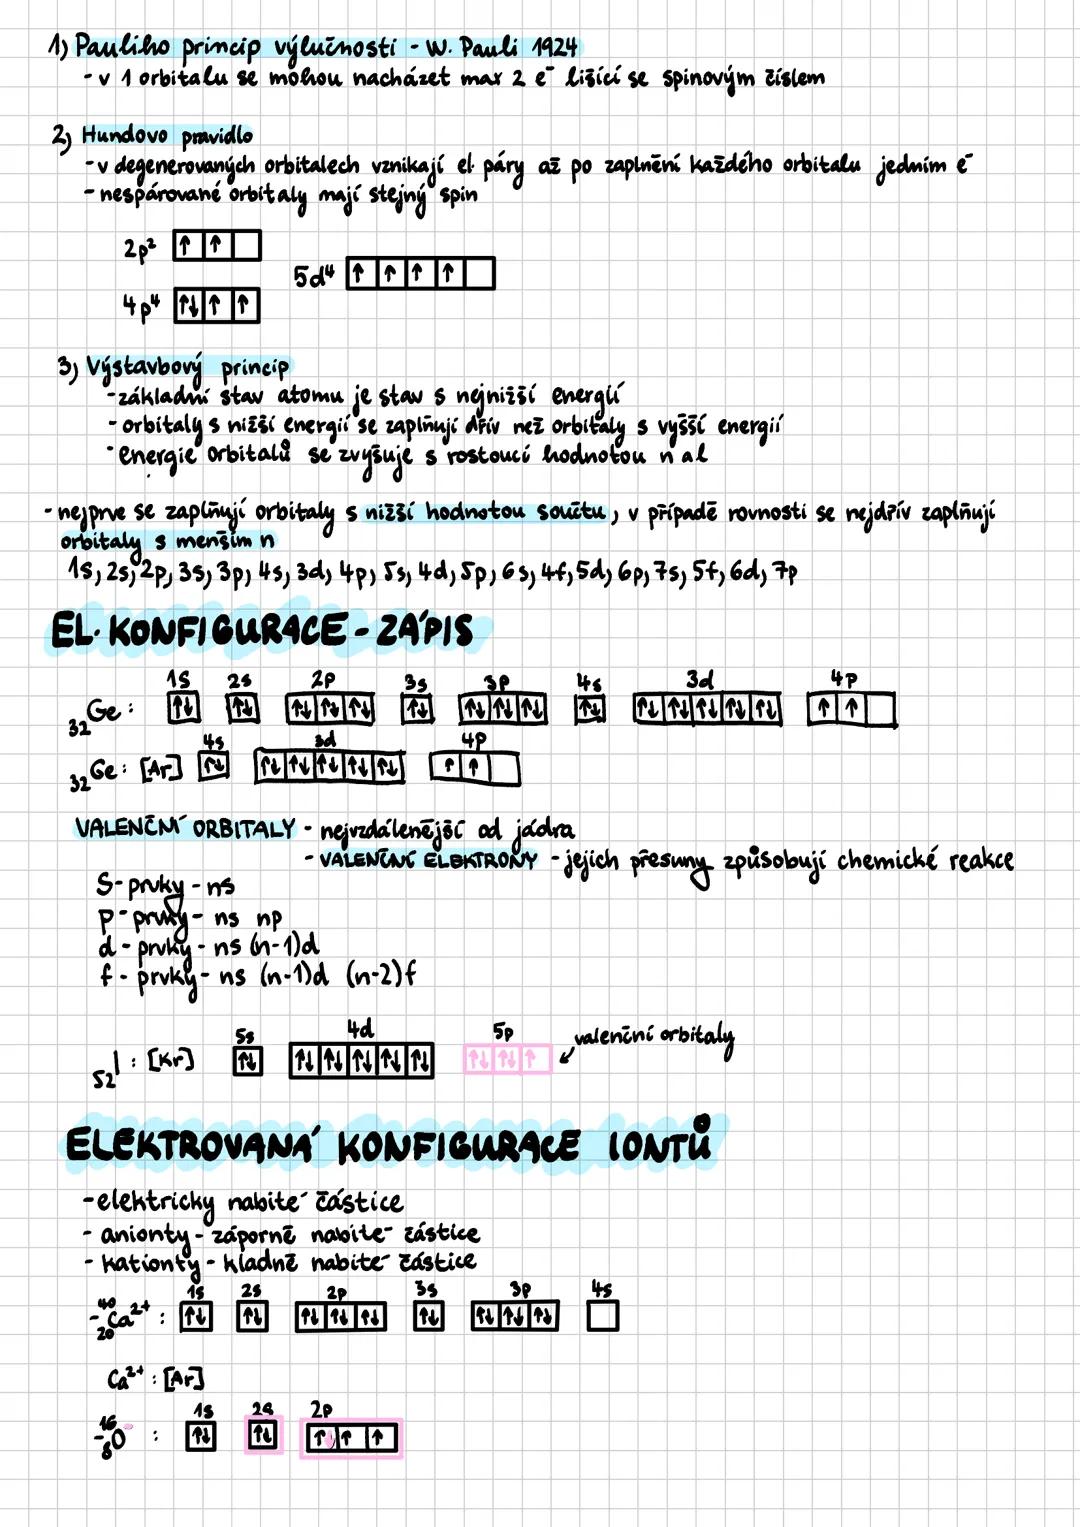 1) Pauliho princip výlučnosti - W. Pauli 1924
- v 1 orbitalu se mohou nacházet max 2 e⁻ lišící se spinovým číslem
2) Hundovo pravidlo
- v degenerovaných orbitalech vznikají el. páry až po zaplnění každého orbitalu jedním e⁻
- nespárované orbitaly mají stejný spin
2p² ↑ ↑
5d⁴ ↑ ↑ ↑ ↑
4p⁴ ↑↓ ↑ ↑
3) Výstavbový princip
- základní stav atomu je stav s nejnižší energií
- orbitaly s nižší energií se zaplňují dřív než orbitaly s vyšší energií
- energie orbitalů se zvyšuje s rostoucí hodnotou n a l
- nejprve se zaplňují orbitaly s nižší hodnotou součtu, v případě rovnosti se nejdřív zaplňují
orbitaly s menším n
1s, 2s, 2p, 3s, 3p, 4s, 3d, 4p, 5s, 4d, 5p, 6s, 4f, 5d, 6p, 7s, 5f, 6d, 7p
EL. KONFIGURACE - ZÁPIS
1s 2s 2p 3s 3p 4s 3d 4p
₃₂Ge: ↑↓ ↑↓ ↑↓ ↑↓ ↑↓ ↑↓ ↑↓ ↑↓ ↑↓ ↑↓ ↑↓ ↑↓ ↑↓ ↑↓ ↑↓ ↑ ↑
4s 3d 4p
₃₂Ge: [Ar] ↑↓ ↑↓ ↑↓ ↑↓ ↑↓ ↑↓ ↑ ↑
VALENČNÍ ORBITALY - nejvzdálenější od jádra
- VALENČNÍ ELEKTRONY - jejich přesuny způsobují chemické reakce
S - prvky - ns
p - prvky - ns np
d - prvky - ns (n-1)d
f - prvky - ns (n-1)d (n-2)f
5s 4d 5p valenční orbitaly
₅₂I: [Kr] ↑↓ ↑↓ ↑↓ ↑↓ ↑↓ ↑↓ ↑↓ ↑↓ ↑
ELEKTROVANÁ KONFIGURACE IONTŮ
- elektricky nabité částice
- anionty - záporně nabité částice
- kationty - kladně nabité částice
1s 2s 2p 3s 3p 4s
- ⁴⁰₂₀Ca²⁺: ↑↓ ↑↓ ↑↓ ↑↓ ↑↓ ↑↓ ↑↓ ↑↓ ↑↓
Ca²⁺: [Ar]
1s 2s 2p
- ¹⁶₈O⁻: ↑↓ ↑↓ ↑↓ ↑ ↑